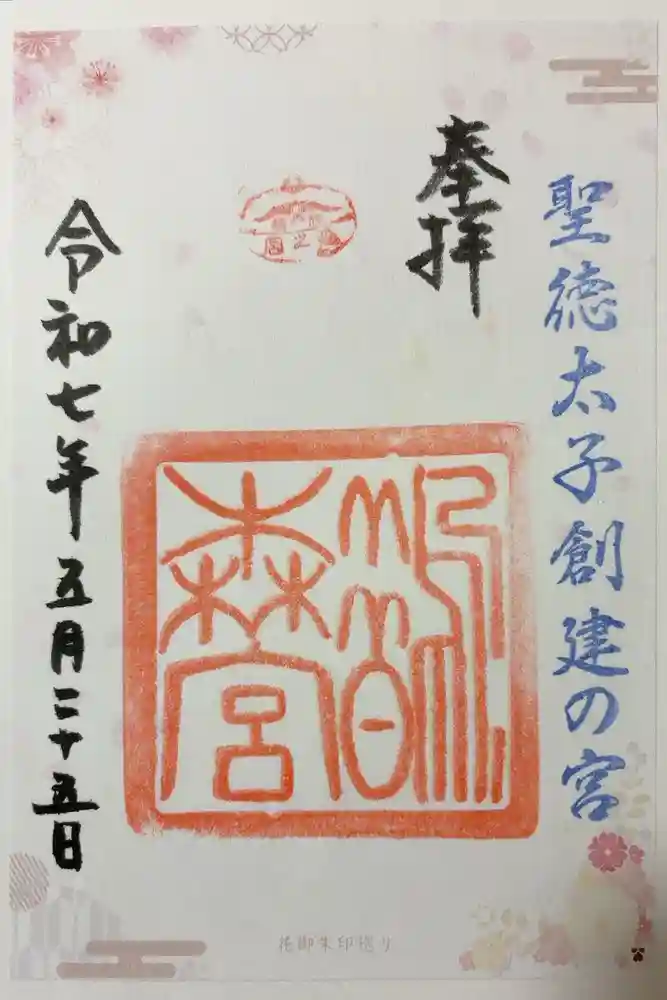 聖徳太子創建の宮
奉拝
鵲
森宮
令和七年五月二十五日
花御朱印巡り